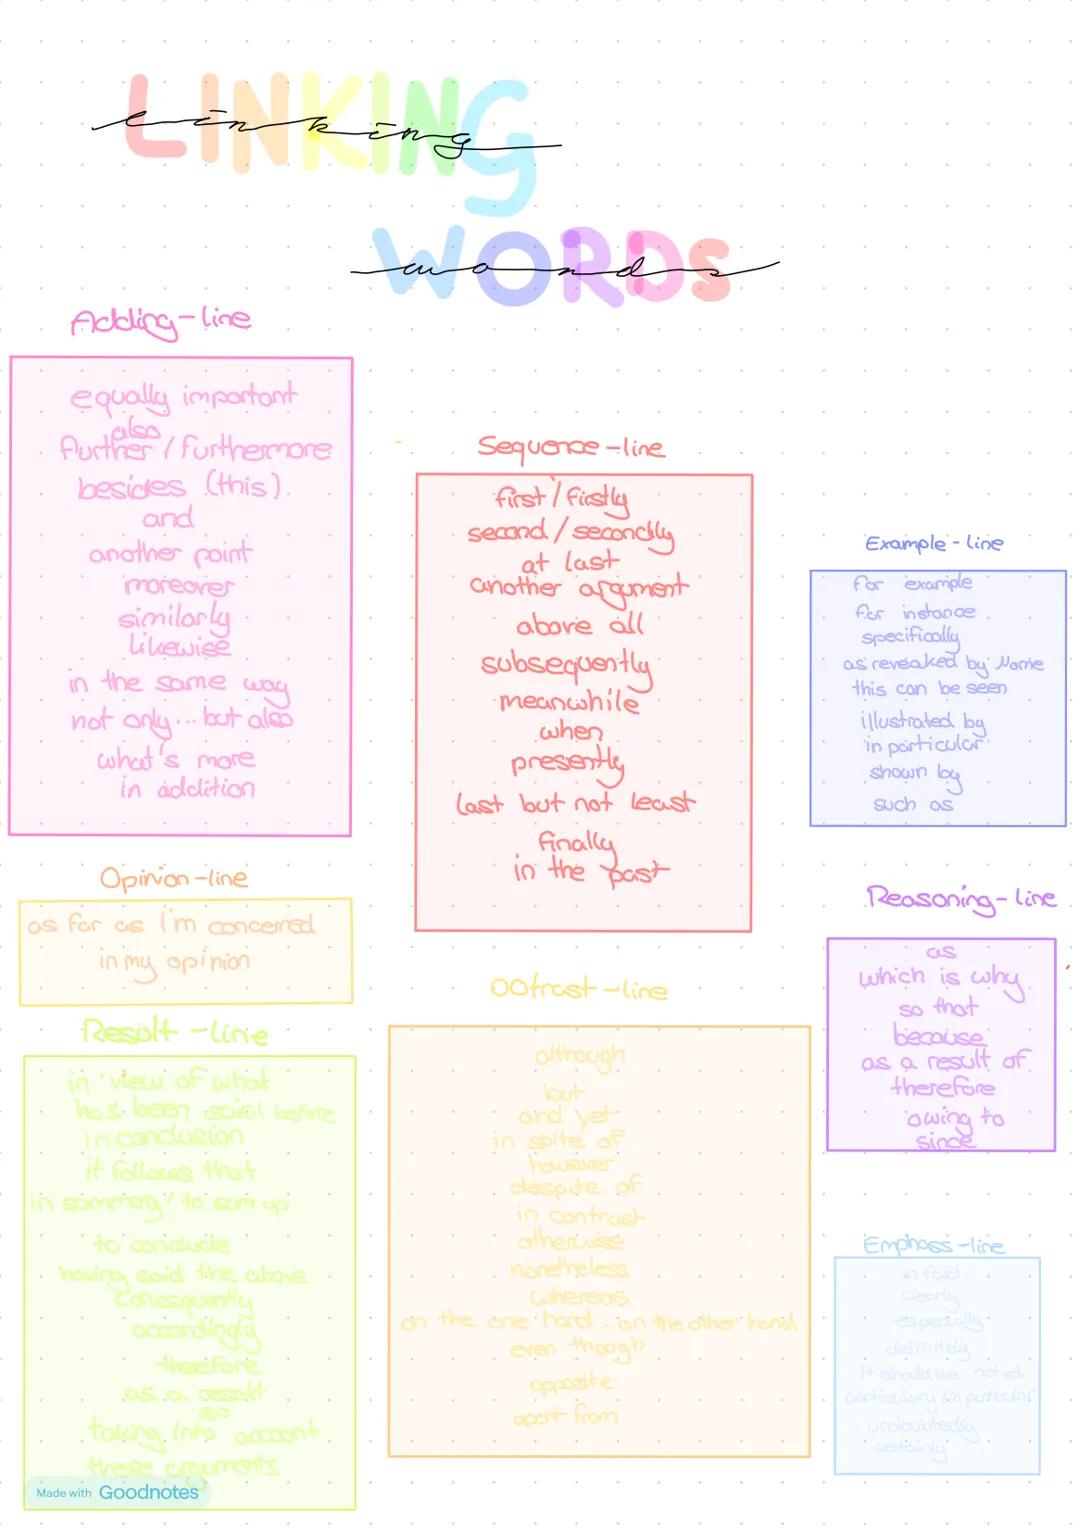 LINKING
linking
WORDS
words
Adding-line
equally important
also
further / furthermore
besides (this)
and
another point
moreover
similarly
likewise
in the same way
not only... but also
what's more
in addition
Sequence-line
first / firstly
second / secondly
at last
another argument
above all
subsequently
meanwhile
when
presently
last but not least
finally
in the past
Example-line
for example
for instance
specifically
as reveaked by Name
this can be seen
illustrated by
in particular
shown by
such as
Opinion-line
as far as I'm concerned
in my opinion
Reasoning-line
as
which is why
so that
because
as a result of
therefore
owing to
since
Result-line
in view of what
has been said before
in conclusion
it follows that
in summary / to sum up
to conclude
having said the above
consequently
accordingly
therefore
as a result
so
taking into account
these arguments
-line
although
but
and yet
in spite of
however
despite of
in contrast
otherwise
nonetheless
whereas
on the one hand ... on the other hand
even though
opposite
apart from
Emphasis-line
in fact
clearly
especially
definitely
it should be noted
particulary / in particular
undoubtedly
certainly
Made with Goodnotes